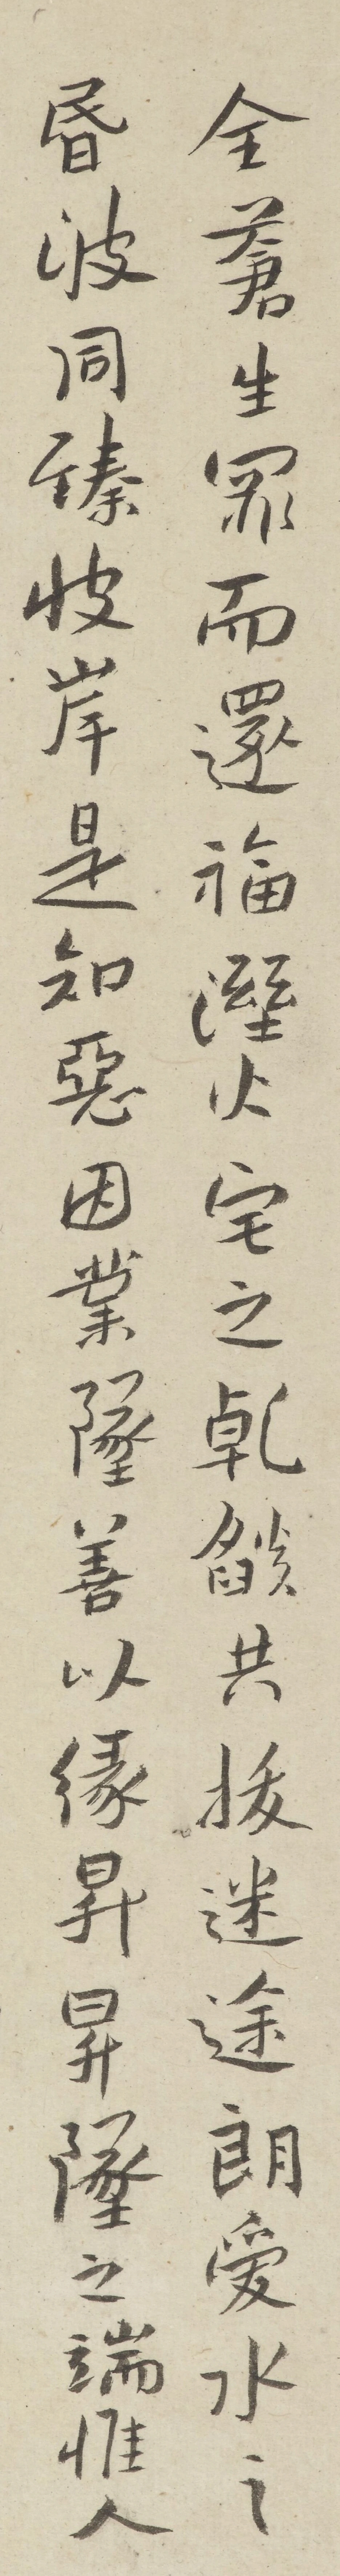 全蒼生罪而還福濕火宅之乹燄共拔迷途朗愛水之
昏波同臻彼岸是知惡因業墜善以緣昇昇墜之端惟人